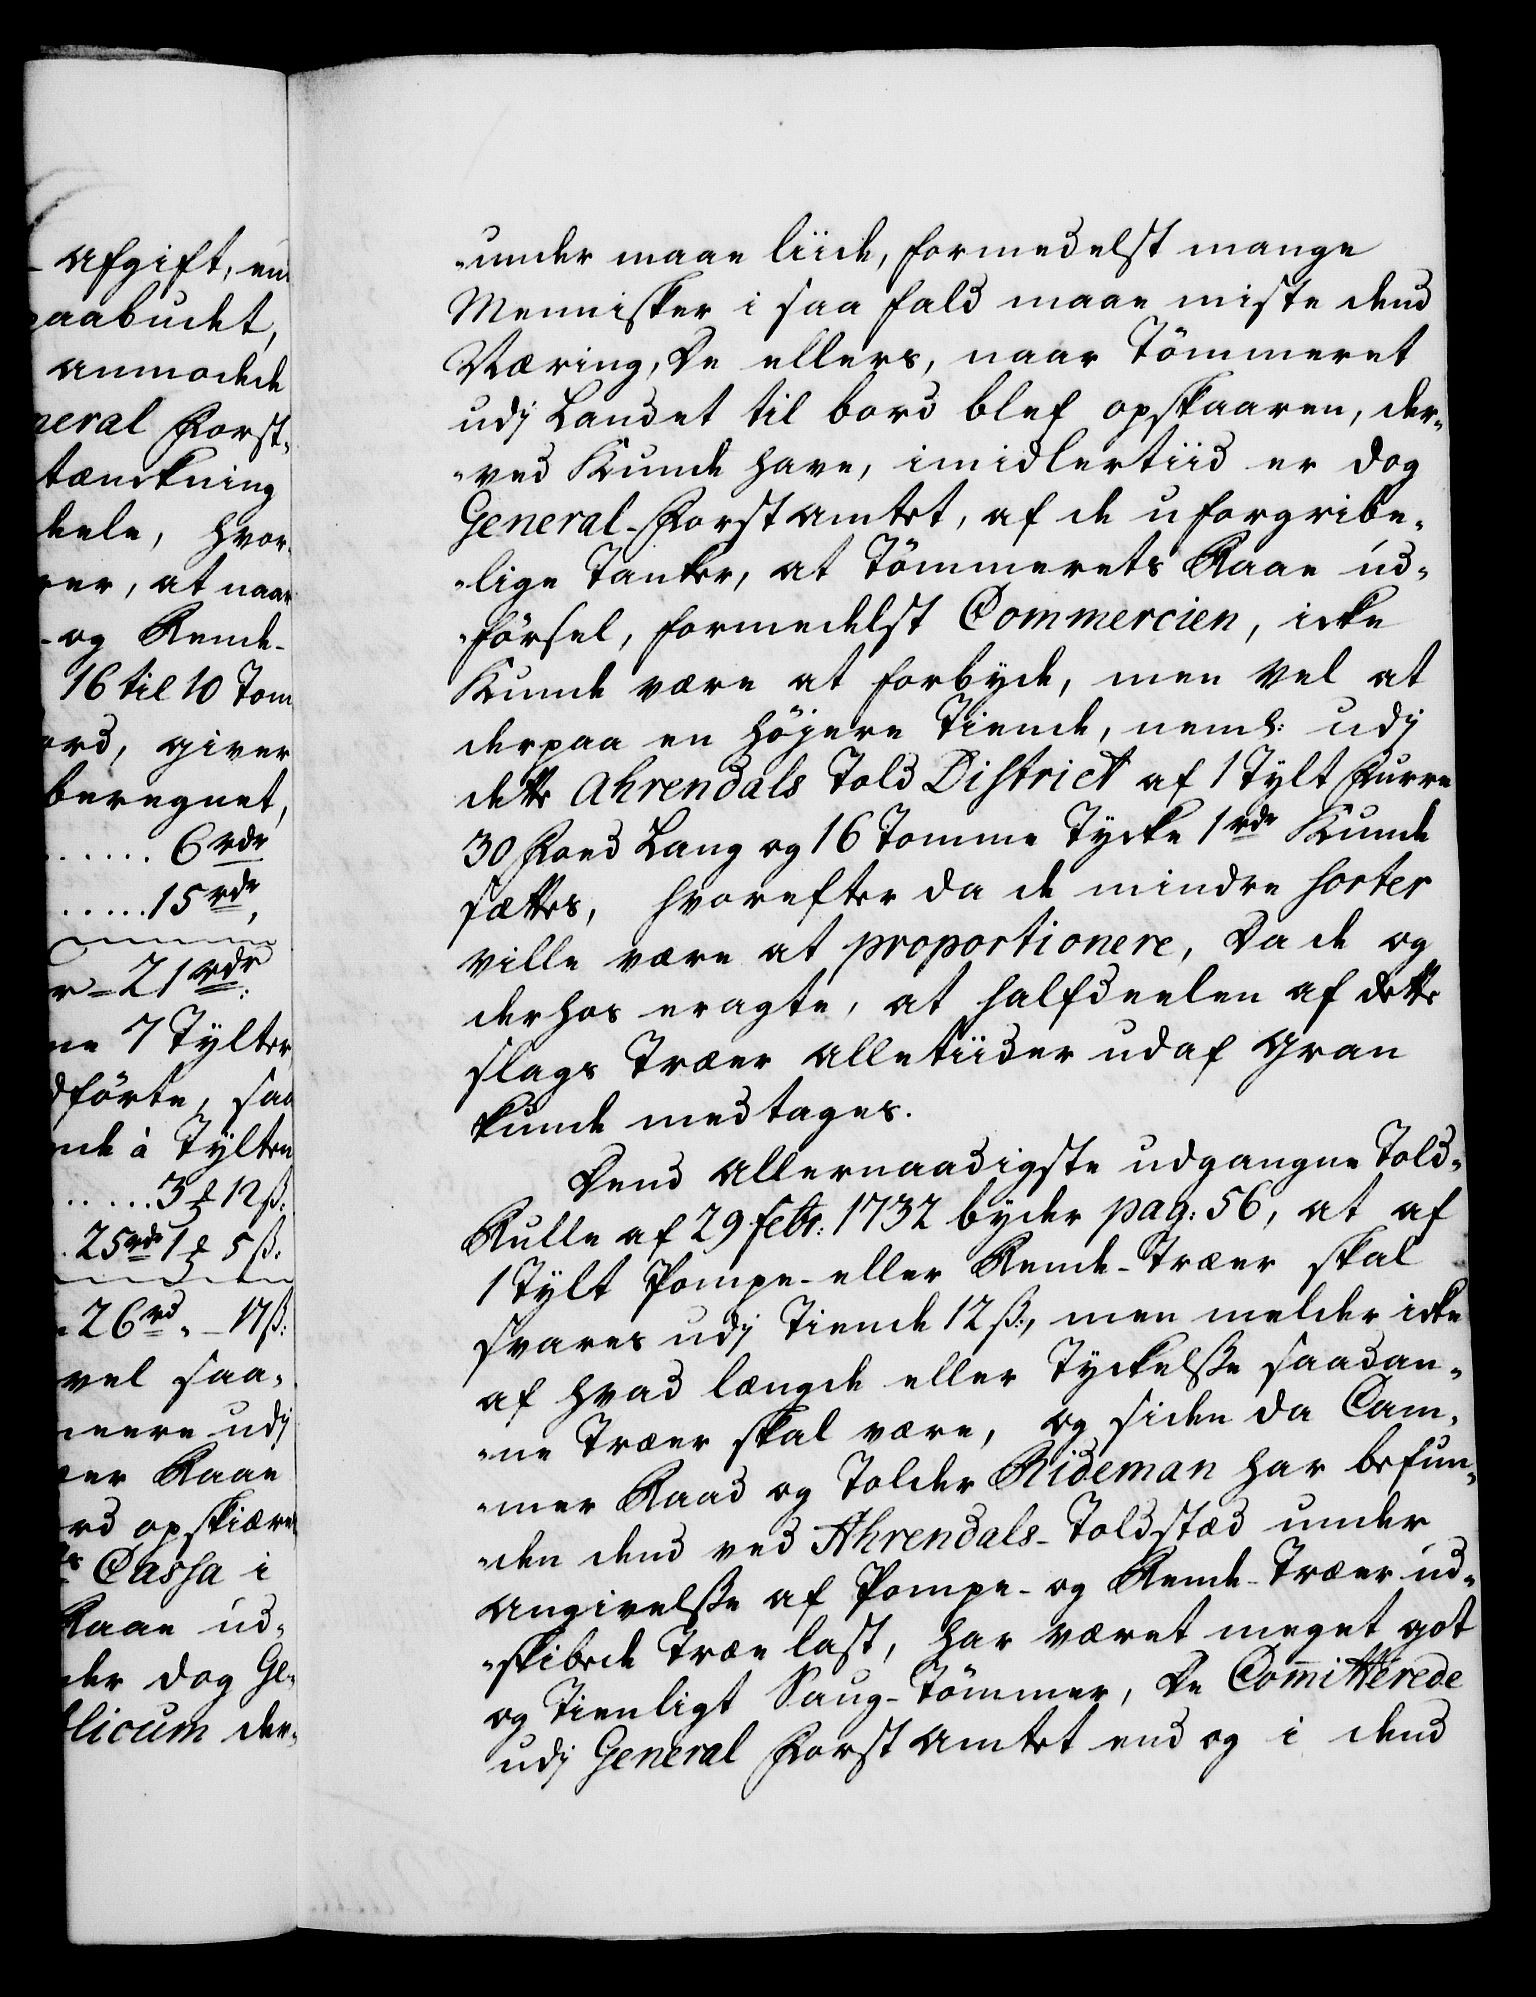 Afgift, en
paabudet,
anmodede
neral Forst-
tænckning
deele, hvor-
rer, at naar
- og Rende-
16 til 10 Tom
ord, giver
beregnet,
...... 6 rdr
..... 15 rdr,
r = 21 rdr:
ne 7 Tylter
dförte, saa
nde à Tÿlten
..... 3 12 ß:
. 25 rdr 1 5 ß:
. 26 rd " - 17 ß:
vel saa-
meere udj
er Raae
rd opskiære
ts Cassa i
Raae ud-
der dog Ge-
licum der-
-under maae liide, formedelst mange
Mennisker i saa fald maae miste dend
Næring, De ellers, naar Tömmeret
udj Landet til bord blef opskaaren, der-
-ved Kunde have, imidlertiid er dog
General-Forst Amtet, af de uforgribe-
-lige Tanker, at Tömmerets Raae ud-
-försel, formedelst Commercien, icke
Kunde være at forbyde, men vel at
derpaa en höjere Tiende, neml: udj
dette Ahrendals Told District af 1 Tylt Furre
30 Foed Lang og 16 Tomme Tycke 1 rdr Kunde
sættes, hvorefter da de mindre sorter
ville være at proportionere, Da de og
derhos eragte, at halfdeelen af dette
slags Træer alletiider udaf Gran
kunde medtages.
Dend allernaadigste udgangne Told-
Rulle af 29 febr: 1732 byder pag: 56, at af
1 Tylt Pompe- eller Rende-Træer skal
svares udj Tiende 12 ß:, men melder icke
af hvad længde eller Tyckelsse saadan-
-ne Træer skal være, og siden da Cam-
-mer Raad og Tolder Rideman har befun-
-den dend ved Ahrendals-Toldstæd under
Angivelsse af Pompe- og Rende-Træer ud-
-skibede Træe last, har været meget got
og Tienligt Saug-Tömmer, De Com̅itterede
udj General Forst Amtet end og i dend